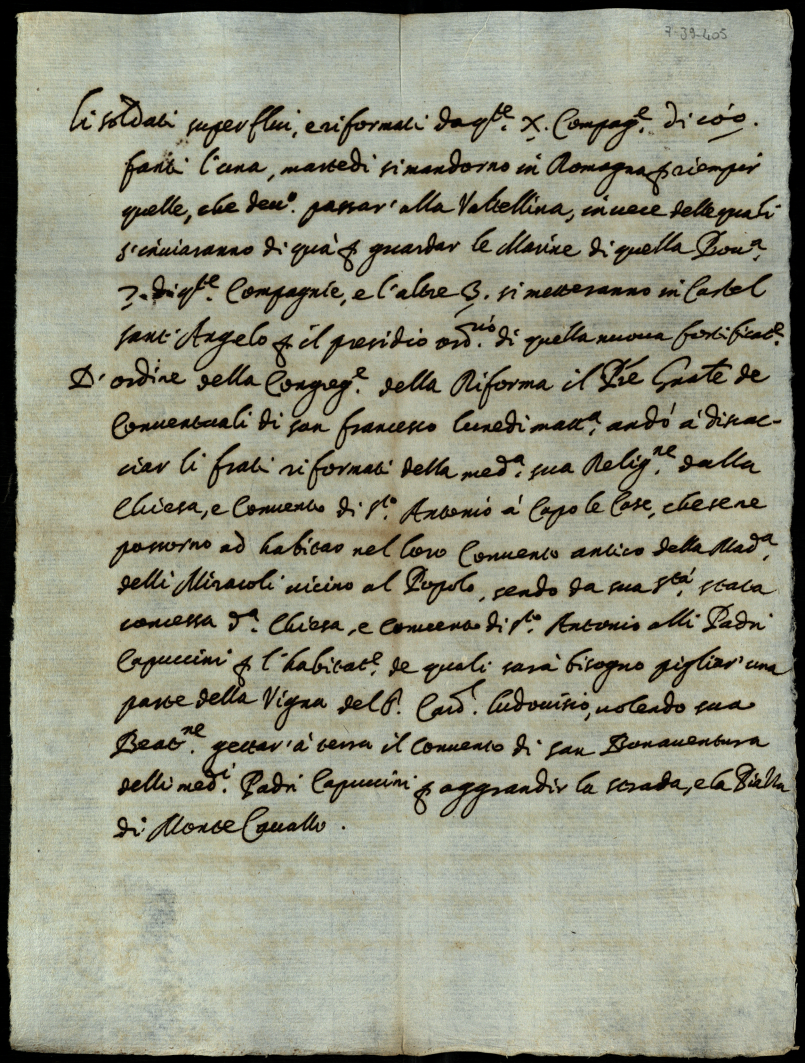 7-39-405
li soldati superflui, e riformati da q.ste X. Compag.e di 100.
fanti l'una, martedi si mandorno in Romagna p riempir
quelle, che deu.o passar' alla Valtellina, in uece delle quali
s'inuiaranno di quà p guardar le Marine di quella Prou.a
7. di q.ste Compagnie, e l'altre 3. si metteranno in Castel
sant'Angelo p il presidio ord.rio di quella nuoua fortificat.e
D'ordine della Congreg.e della Riforma il Pre Gnale de
Conuentuali di san francesco lunedi matt.a andò à discac-
ciar li frati riformati della med.a sua Relig.ne dalla
Chiesa, e Conuento di s.to Antonio à Capo le Case, che se ne
passorno ad habitar nel loro Conuento antico della Mad.a
delli Miracoli uicino al Popolo, sendo da sua S.tà stata
concessa d.a Chiesa, e Conuento di s.to Antonio alli Padri
Capuccini p l'habitat.e de quali sarà bisogno pigliar' una
parte della Vigna del S.r Card.l ludouisio, uolendo sua
Beat.ne gettar' à terra il Conuento di san Bonauentura
delli med.i Padri Capuccini p aggrandir la strada, e la Piazza
di Monte Cauallo.